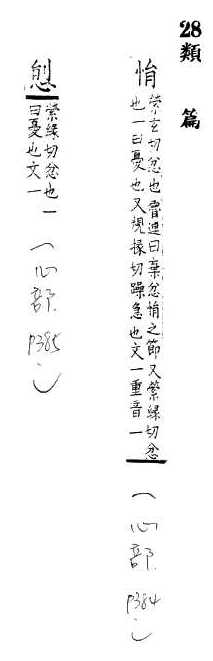 28類篇
悁
縈玄切忿也魯連曰棄忿悁之節又縈緣切忿
也一曰憂也又規掾切躁急也文一重音一
(心部 P384)
縈緣切忿也一
曰憂也文一
(心部 P385)